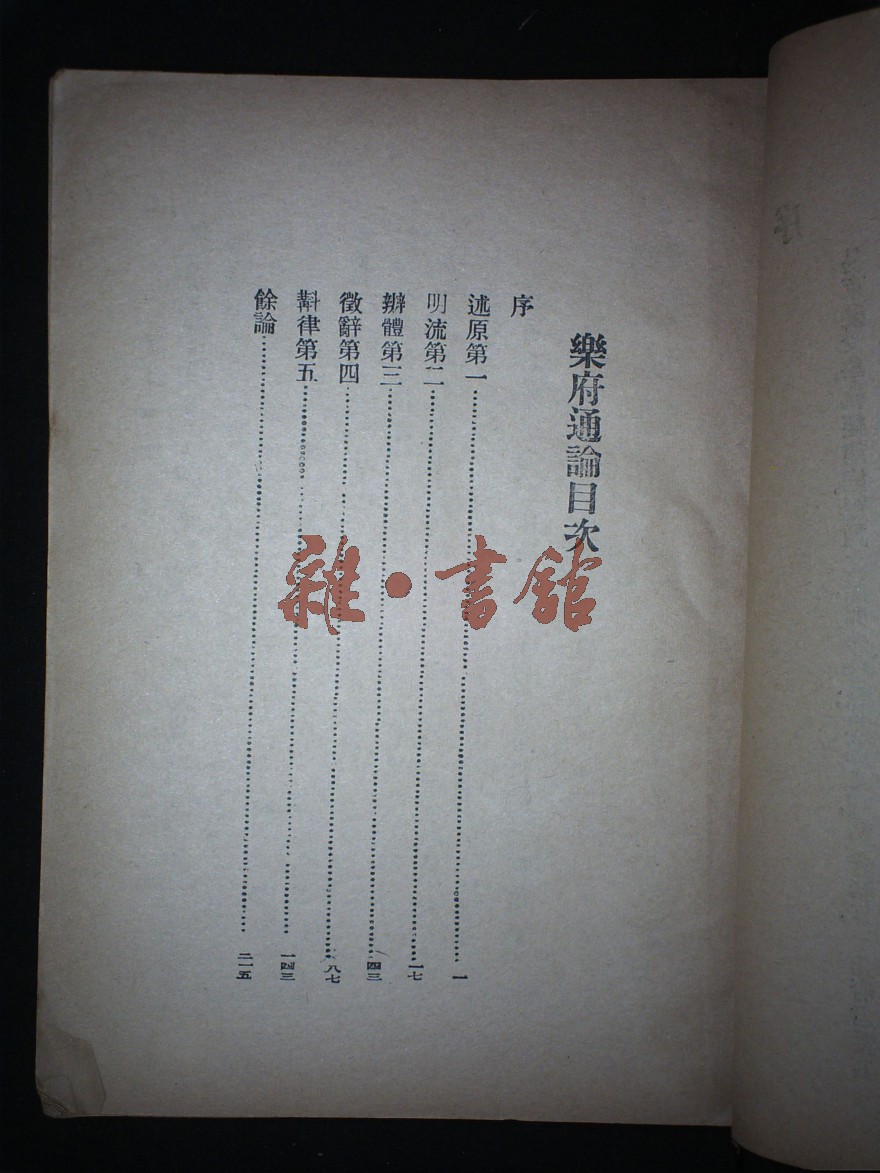 樂府通論目次
序
述原第一⋯⋯一
明流第二⋯⋯一七
辨體第三⋯⋯四三
徵辭第四⋯⋯八七
斠律第五⋯⋯一四三
餘論⋯⋯二一五
雜·書館
序